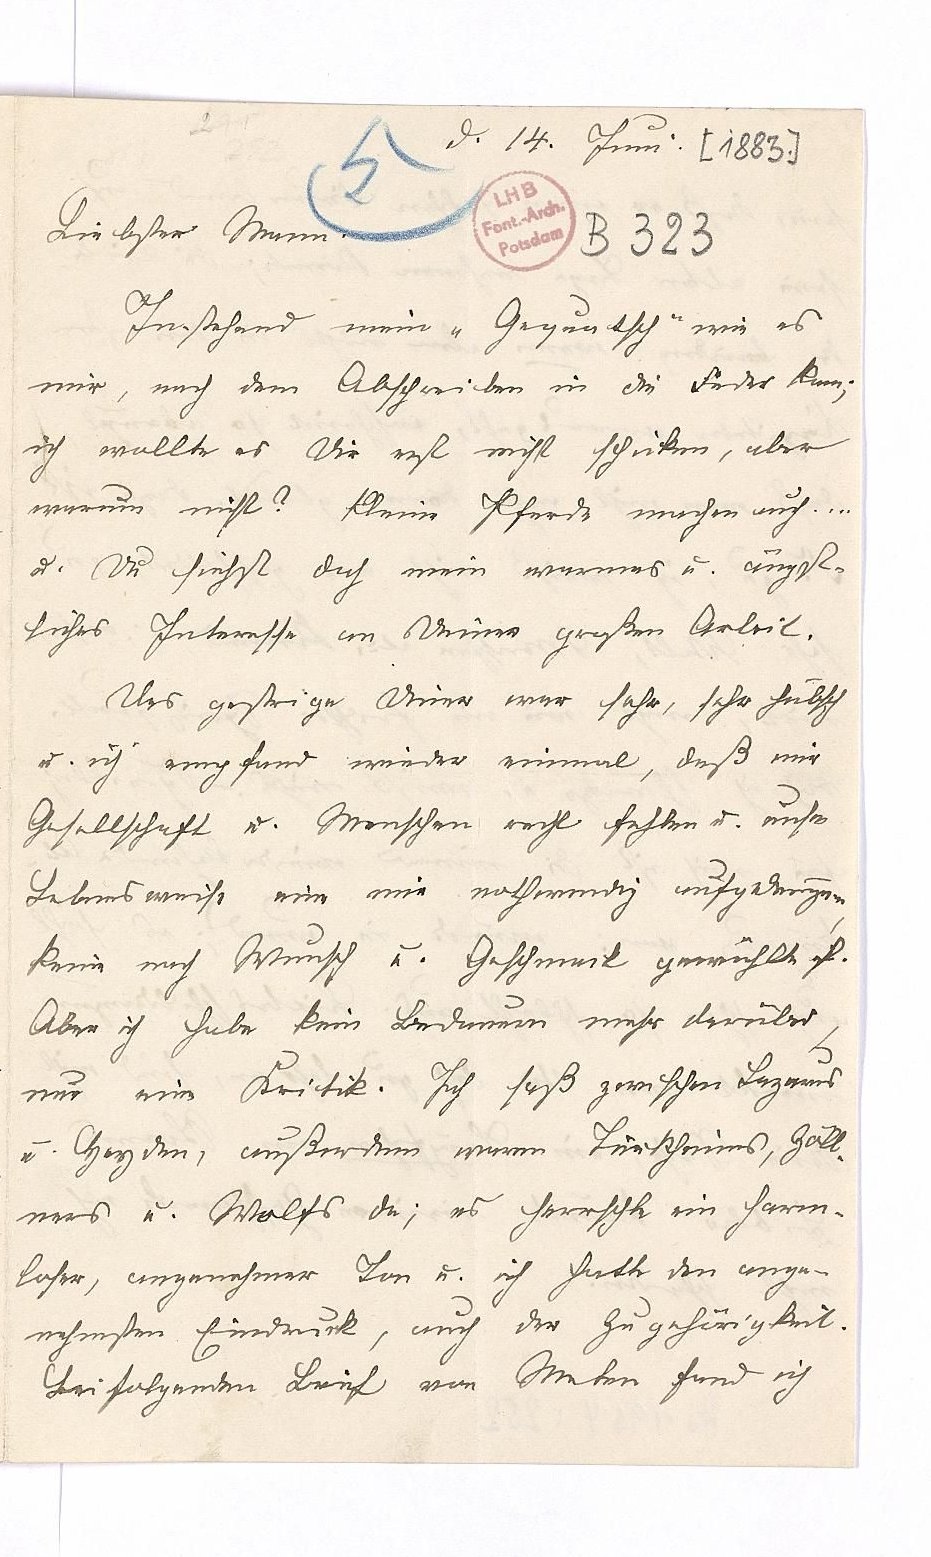 d. 14. Juni. [1883.]
5
LHB
Font.-Arch.
Potsdam
B 323
Liebster Mann.
Instehend mein „Gequatsch" wie es
mir, nach dem Abschreiben in die Feder kam;
ich wollte es Dir erst nicht schicken, aber
warum nicht? kleine Pferde machen auch....
u. Du siehst doch mein warmes u. ängst-
liches Interesse an Deiner großen Arbeit.
Das gestrige Diner war sehr, sehr hübsch
u. ich empfand wieder einmal, daß mir
Gesellschaft u. Menschen recht fehlen u. unsre
Lebensweise eine mir nothwendig aufgedrungene,
keine nach Wunsch u. Geschmack gewählte ist.
Aber ich habe kein Bedauern mehr darüber,
nur eine Kritik. Ich saß zwischen Lazarus
u. Heyden, außerdem waren Türkheims, Zöll-
ners u. Wolfs da; es herrschte ein harm-
loser, angenehmer Ton u. ich hatte den ange-
nehmsten Eindruck, auch der Zugehörigkeit.
Beifolgenden Brief von Meten fand ich